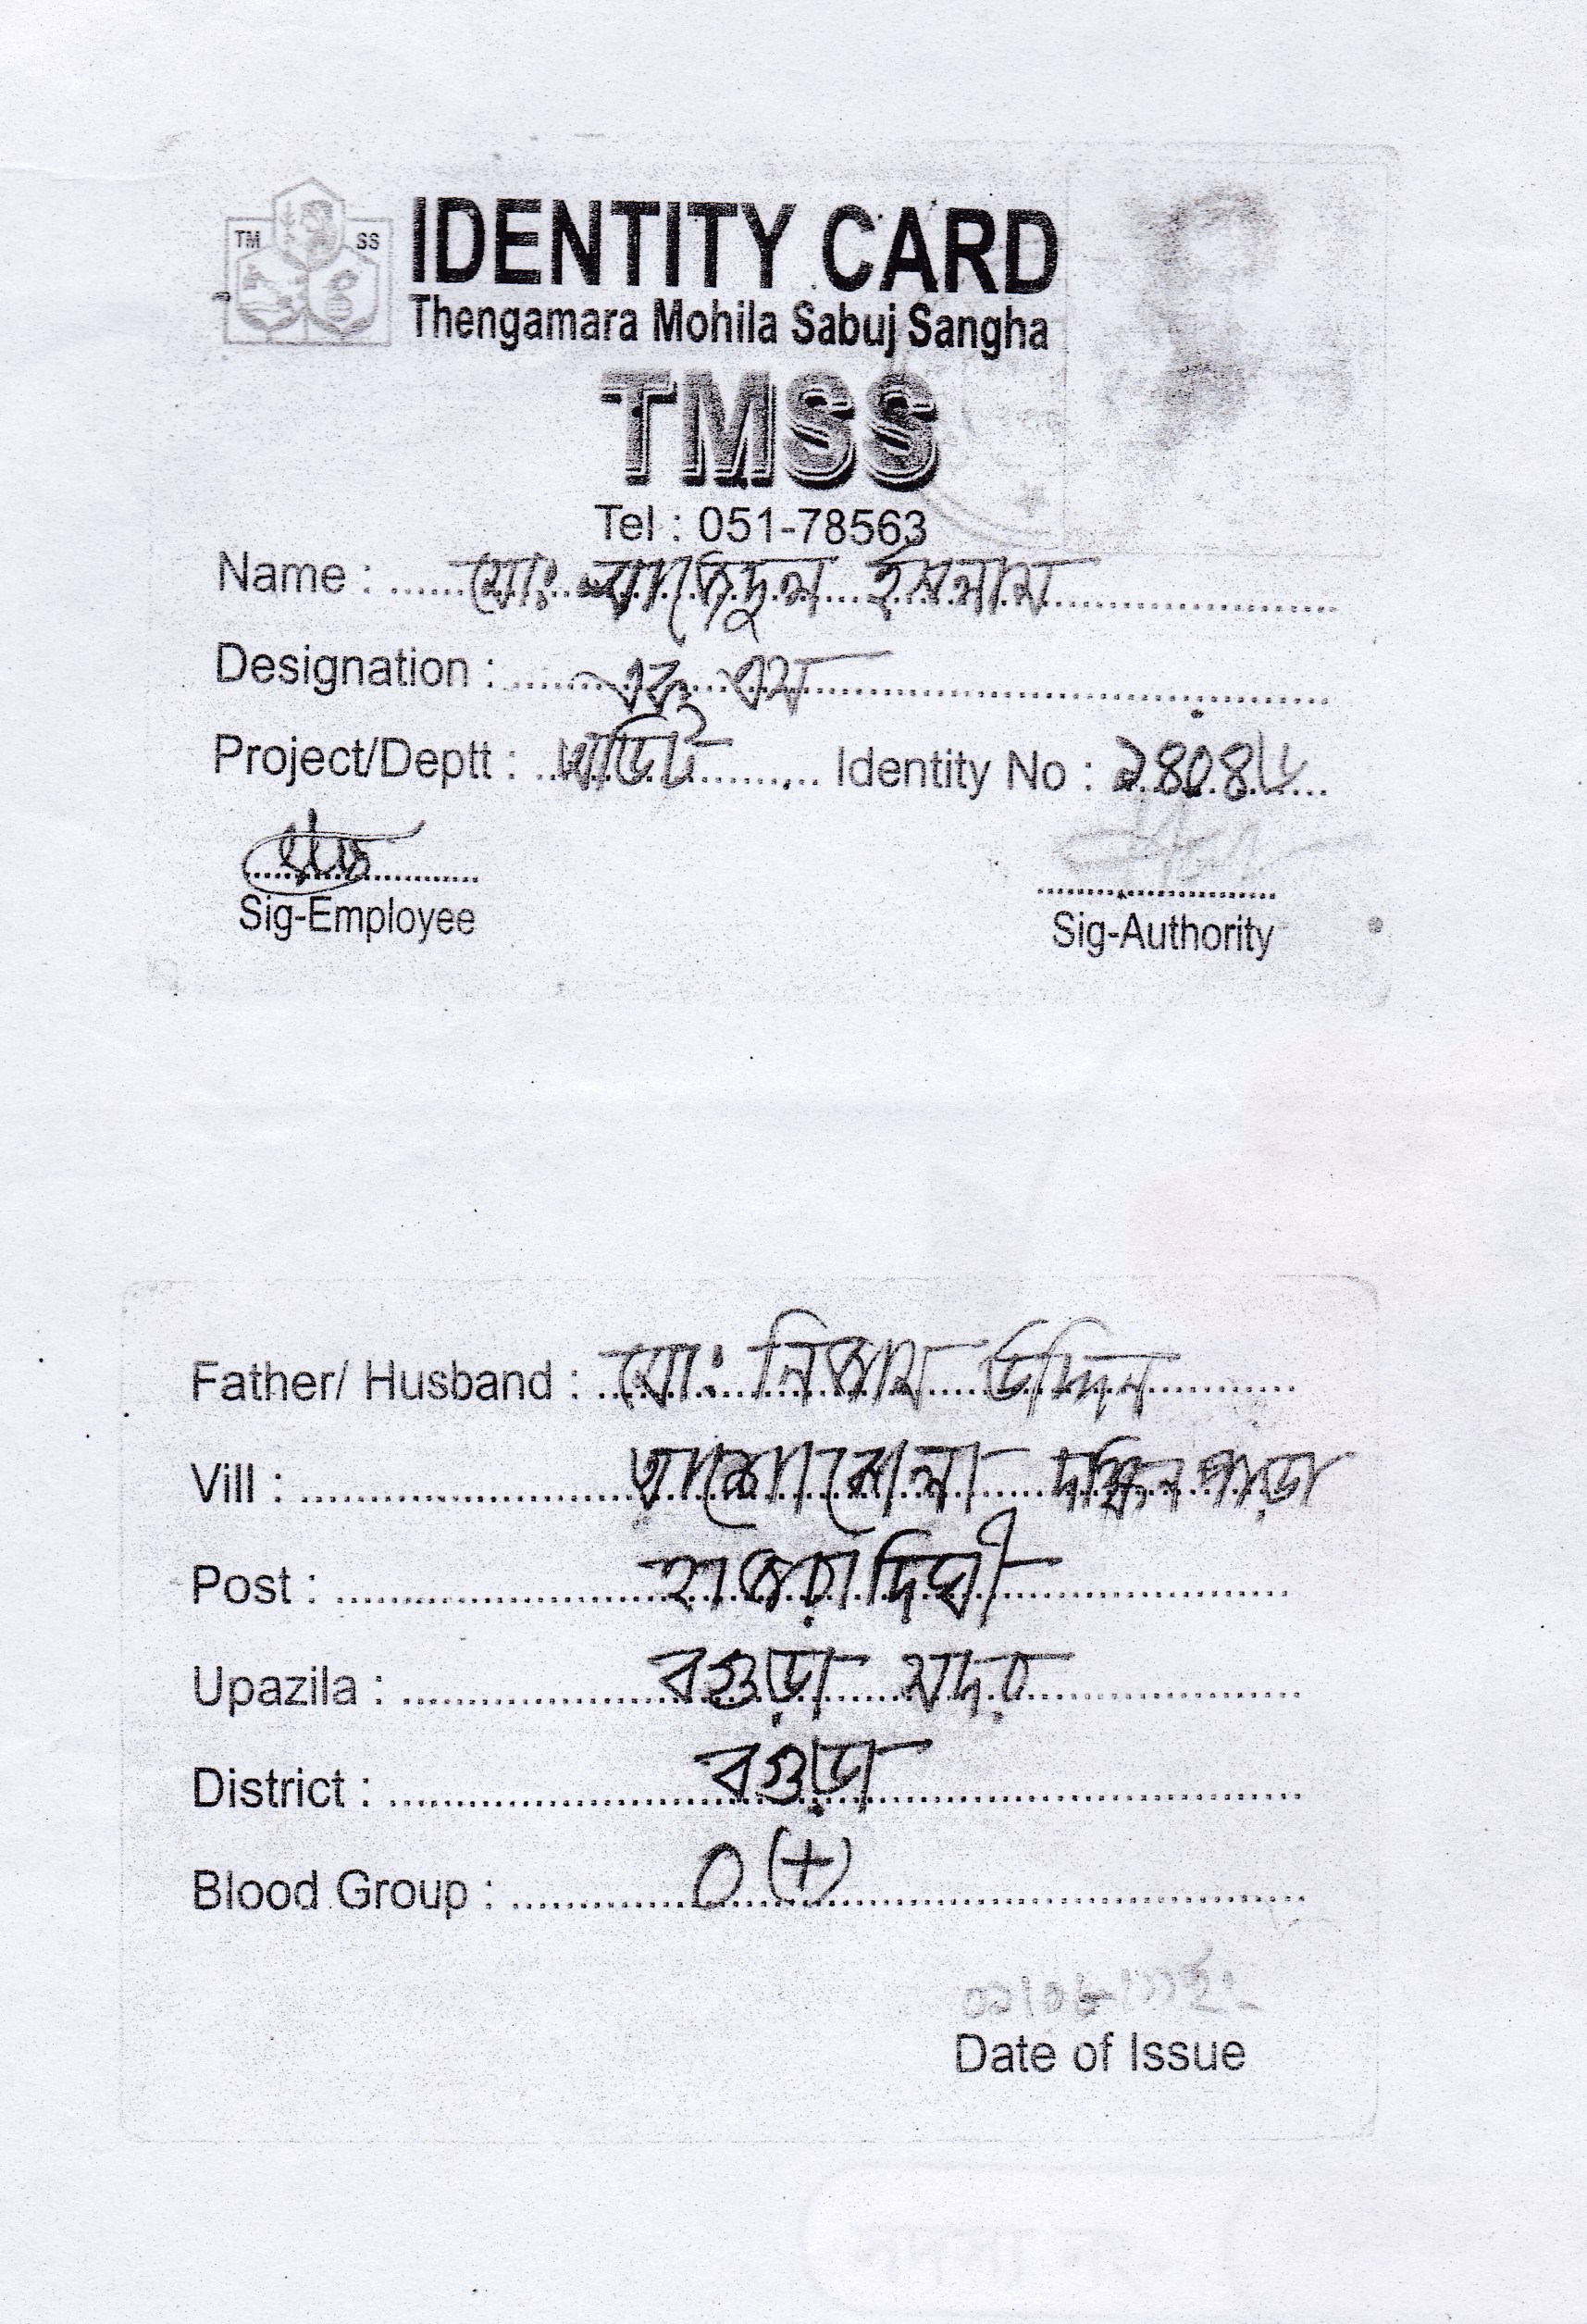 TM SS
IDENTITY CARD
Thengamara Mohila Sabuj Sangha
TMSS
Tel : 051-78563
Name : মোঃ সাজেদুল ইসলাম
Designation : এফ এম
Project/Deptt : অডিট Identity No : ১৪০৪৮
Sig-Employee
Sig-Authority
Father/ Husband : মোঃ নিজাম উদ্দিন
Vill : দক্ষিন পাড়া
Post : হাজরাদিঘী
Upazila : বগুড়া সদর
District : বগুড়া
Blood Group : O (+)
Date of Issue